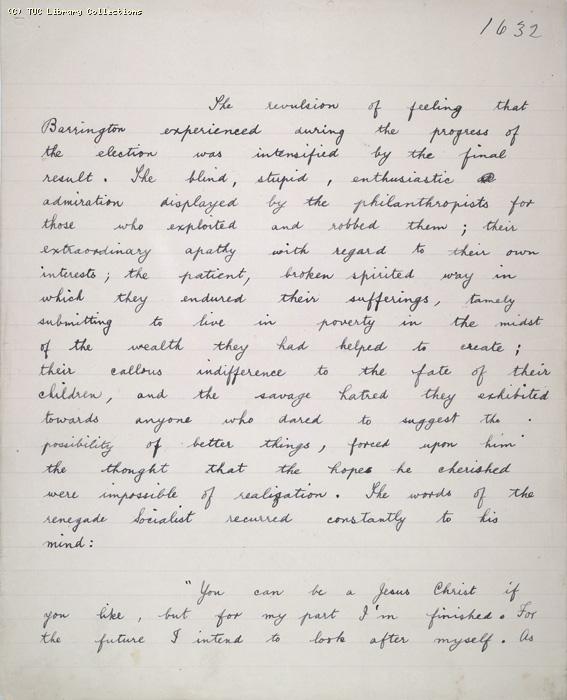 (C) TUC Library Collections
1632
The revulsion of feeling that
Barrington experienced during the progress of
the election was intensified by the final
result. The blind, stupid, enthusiastic
admiration displayed by the philanthropists for
those who exploited and robbed them; their
extraordinary apathy with regard to their own
interests; the patient, broken spirited way in
which they endured their sufferings, tamely
submitting to live in poverty in the midst
of the wealth they had helped to create;
their callous indifference to the fate of their
children, and the savage hatred they exhibited
towards anyone who dared to suggest the
possibility of better things, forced upon him
the thought that the hopes he cherished
were impossible of realization. The words of the
renegade Socialist recurred constantly to his
mind:
"You can be a Jesus Christ if
you like, but for my part I'm finished. For
the future I intend to look after myself. As